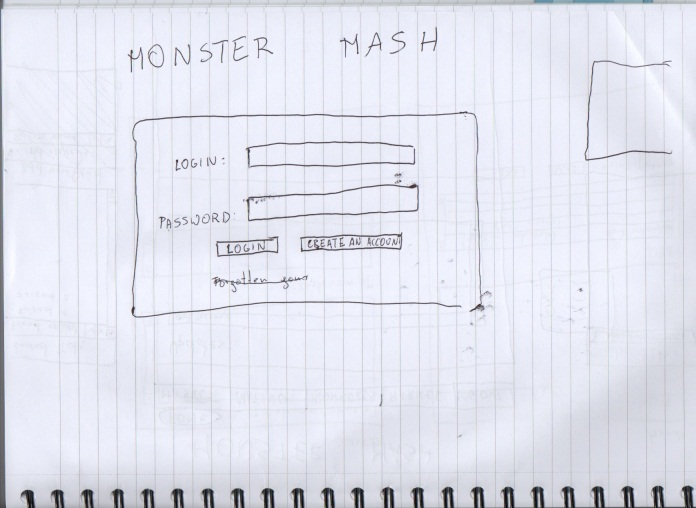 MONSTER MASH
LOGIN:
PASSWORD:
LOGIN CREATE AN ACCOUNT
Forgotten your